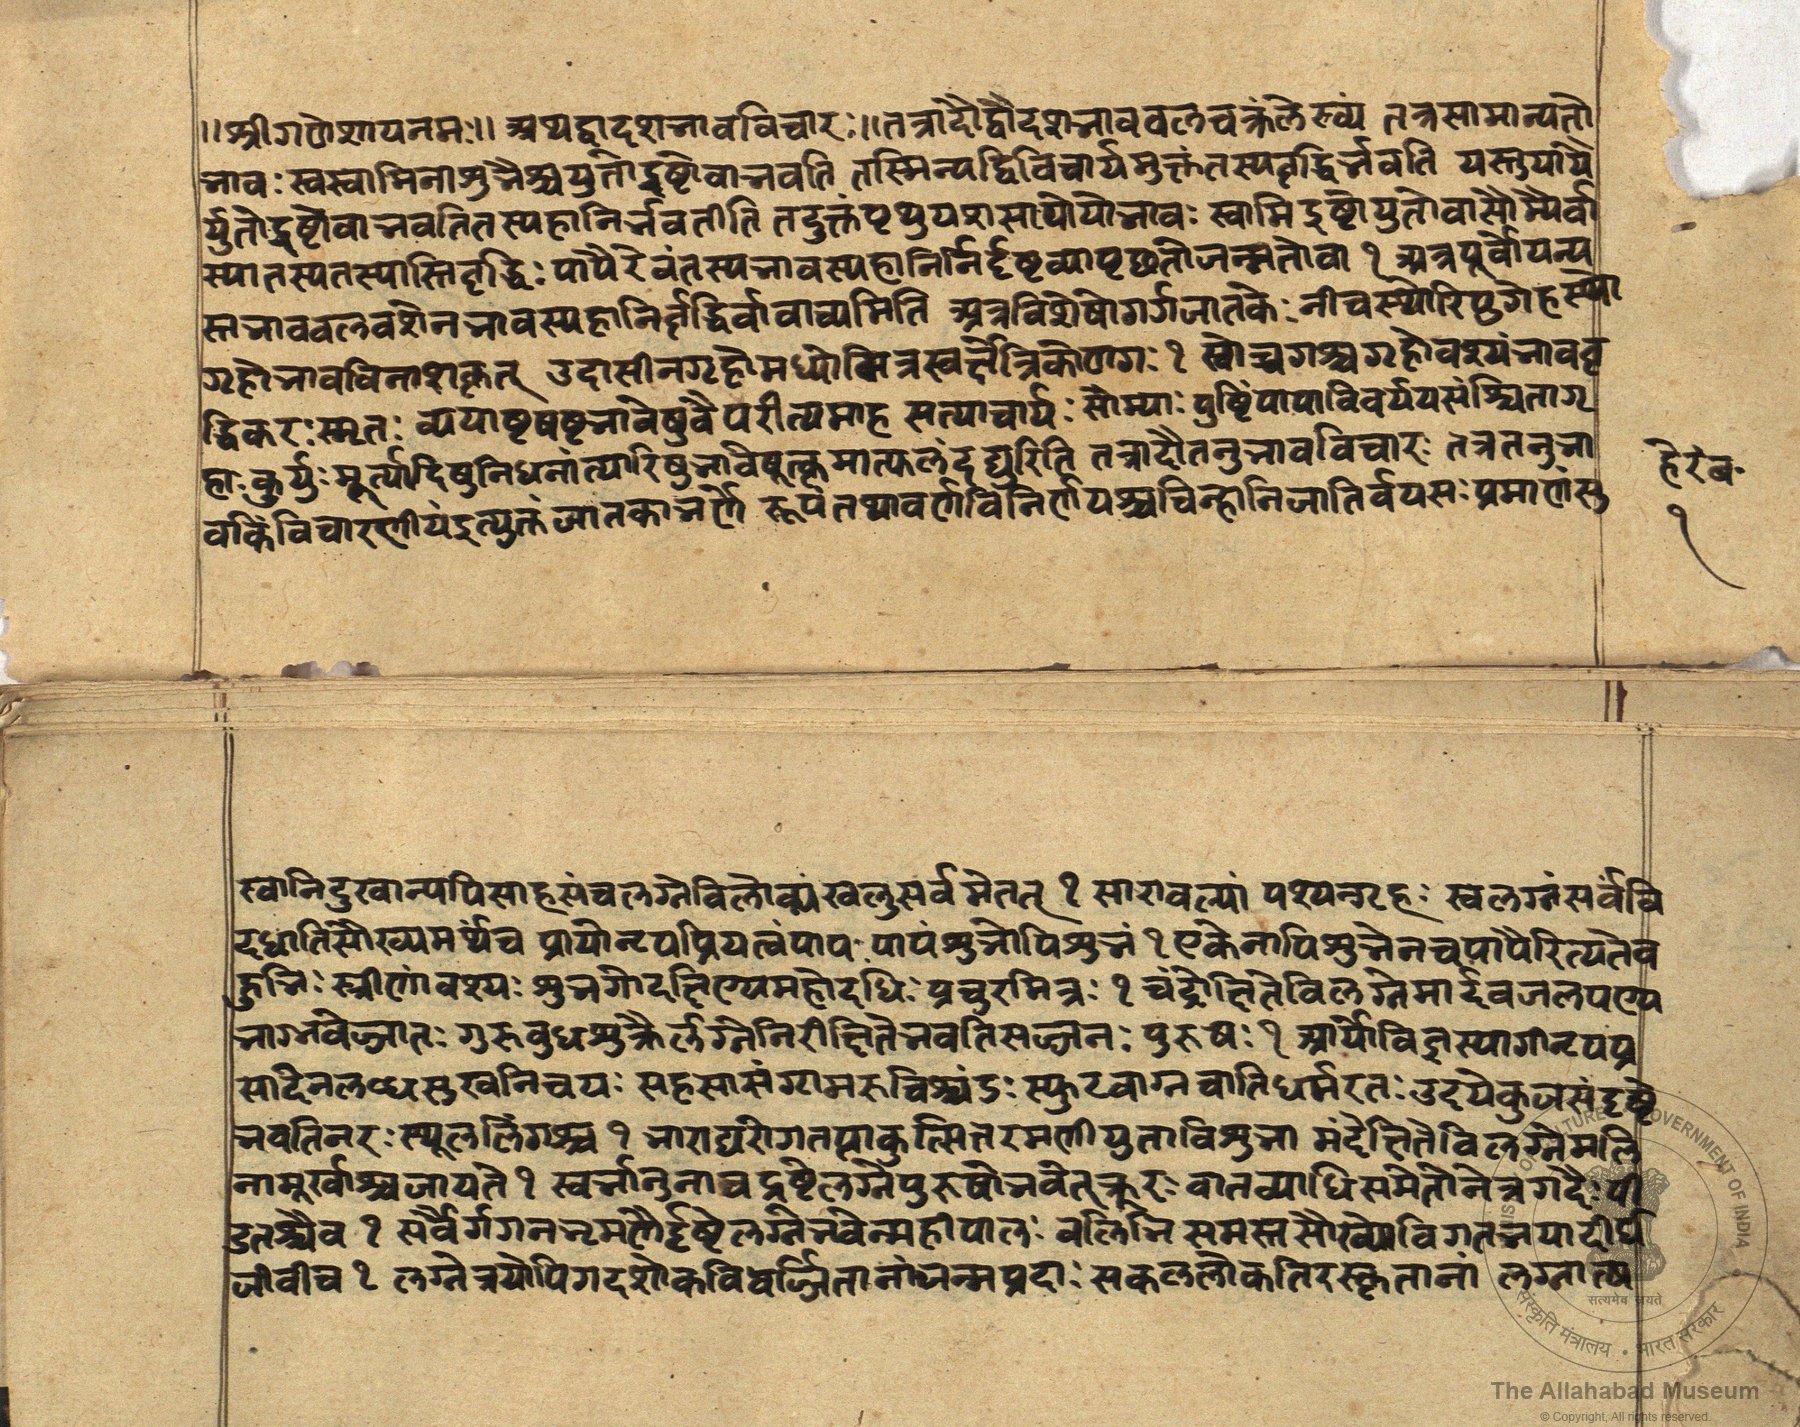 ॥श्रीगणेशायनमः॥ अथद्वादशभावविचारः॥तत्रादौद्वादशभावबलचक्रंलेख्यं तत्रसामान्यतो
भावः स्वस्वामिनाशुभैश्चयुतोदृष्टोवाभवति तस्मिन्यद्विविचार्यमुक्तंतस्यवृद्धिर्भवति यस्तुपापै
र्युतोदृष्टोवाभवतितस्यहानिर्भवतीति तदुक्तंपृथुयशसायोयोभावः स्वामिदृष्टोयुतोवासौम्यैर्वा
स्यात्तस्यतस्यास्तिवृद्धिः पापैरेवंतस्यभावस्यहानिर्निर्दृष्टव्यापृछतोजन्मतोवा १ अत्रपूर्वोपन्य
स्तभावबलवशेनभावस्यहानिर्वृद्धिर्वावाच्यमिति अत्रविशेषोगर्गजातके नीचस्थोरिपुगेहस्थो
गृहोभावविनाशकृत् उदासीनगृहोमध्योमित्रस्वर्क्षत्रिकोणगः १ स्वोच्चगश्चगृहोवश्यंभाववृ
द्धिकरःस्मृतः व्ययाष्टषष्टभावेषुवैपरीत्यमाह सत्याचार्यः सौम्याः पुष्टिंपापाविपर्ययसंश्चितागृ
हाः कुर्युः मूर्त्यादिषुनिधनांत्यारिषुभावेषूत्क्रमात्फलंदद्युरिति तत्रादौतनुभावविचारः तत्रतनुभा
वकिंविचारणीयंइत्युक्तंजातकाभर्णे रूपंतथावर्णविनिर्णयश्चचिन्हानिजातिर्वयसः प्रमाणंसु
हेरंब॰
१
खानिदुखान्यपिसाहसंचलग्नेविलोक्यंखलुसर्वमेतत् १ सारावल्यां पश्यन्गृहः स्वलग्नंसर्वंवि
दधातिसौख्यमर्थंच प्रायोनृपप्रियत्वंपापः पापंशुभोपिशुभं १ एकेनापिशुभेनचपापैरित्यतैव
द्रुभिः स्त्रीणांवश्यः शुभगोदक्षिण्येमहोदधिः प्रचुरमित्रः १ चंद्रेक्षितेविलग्नेमार्दवजलपण्ये
भाग्भवेज्जातः गुरुबुधशुक्रैर्लग्नेनिरीक्षितेभवतिसज्जनः पुरुषः १ आर्योविद्वत्स्यागीनृपप्र
सादेनलब्धसुखनिचयः सहसासंग्रामरुचिश्चंडः स्फुटवाग्नचातिधर्मरतः उदयेकुजसंदृष्टे
भवतिनरः स्थूललिंगश्च १ भाराद्यरोगतप्ताकुत्सितरमणीयुताविशुभा मंदेक्षितेविलग्नेमलि
नामूर्खाश्चजायंते १ स्वर्भानुनाचदृष्टेलग्नेपुरुषोभवेत्क्रूरः वातव्याधिसमेतोनेत्रगदैः पी
डितश्चैव १ सर्वैर्गगनभ्रमणैर्दृष्टेलग्नेभवेन्महीपालः बलिभिः समस्तसौख्योविगतभयादीर्घ
जीवीच १ लग्नेत्रयोपिगदशोकविवर्ज्जितानांजन्मप्रदाः सकललोकतिरस्कृतानां लग्नात्ष
सत्यमेव जयते
संस्कृति मंत्रालय • भारत सरकार
The Allahabad Museum
© Copyright, All rights reserved.